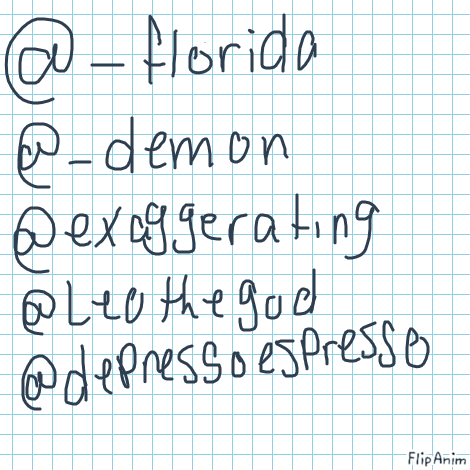 @_florida
@_demon
@exaggerating
@Leothegod
@depressoespresso
FlipAnim